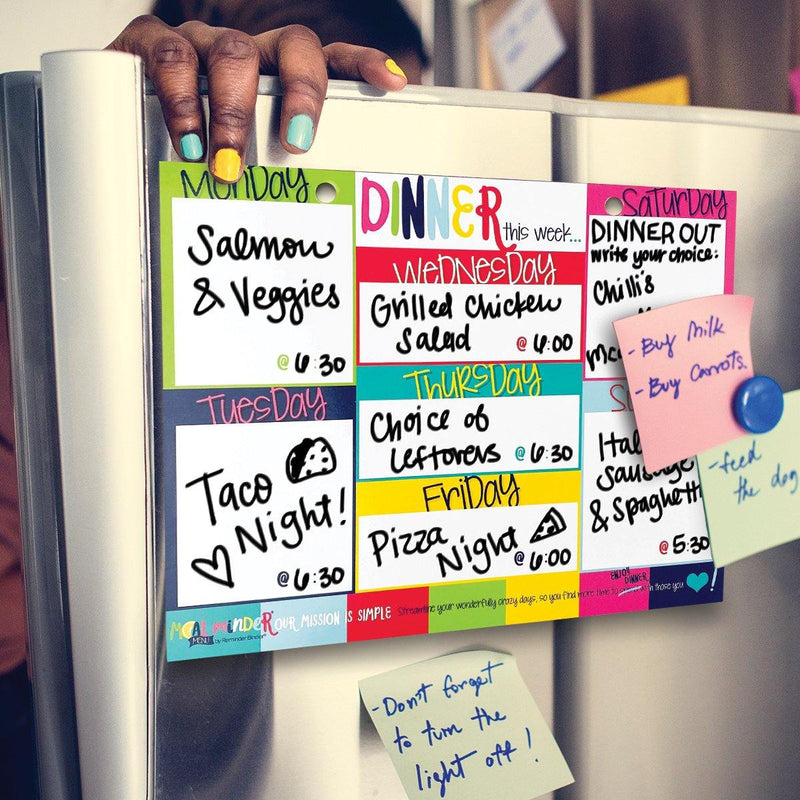 MonDay
Salmon
& Veggies
@ 6:30
TuesDay
Taco
Night!
@ 6:30
DINNER
this week...
WeDnesDay
Grilled Chicken
Salad @ 6:00
ThursDay
Choice of
Leftovers @ 6:30
FriDay
Pizza
Night
@ 6:00
SaturDay
DINNER OUT
write your choice:
Chilli's
- Buy Milk
- Buy Carrots.
Sausage
& Spaghetti
@ 5:30
- feed
the dog
MEAL minDeR
MENU by Reminder Binder
OUR MISSION IS SIMPLE
Streamline your wonderfully crazy days, so you find more time to
ENJOY
DINNER
with those you
!
- Don't forget
to turn the
light off!